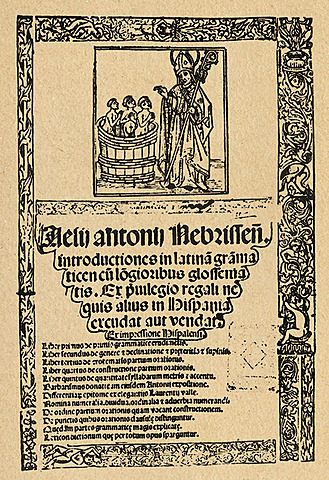 Aelij antonij Nebrissen.
introductiones in latinā grāma
ticen cū lōgioribus glossema
tis. Ex puilegio regali ne
quis alius in Hispania
excudat aut vendat
Ex impressione Hispalensi
Liber primus de primis grammatice erudimētis.
Liber secundus de genere & declinatione & preteritis & supinis.
Liber tertius de erotematis partium orationis.
Liber quartus de constructione partium orationis.
Liber quintus de quantitate syllabarum metris & accentu.
Barbarismus donati cum eiusdem Antonij expositione.
Differentie epitome ex elegantijs Laurentij valle.
Nomina numeralia, ordinalia & aduerbia numerandi
De ordine partium orationis quam vocant constructionem.
De punctis quibus orationis clausule distinguntur.
Quedam partes grammatice magis explicate.
Lexicon dictionum que per totum opus sparguntur.